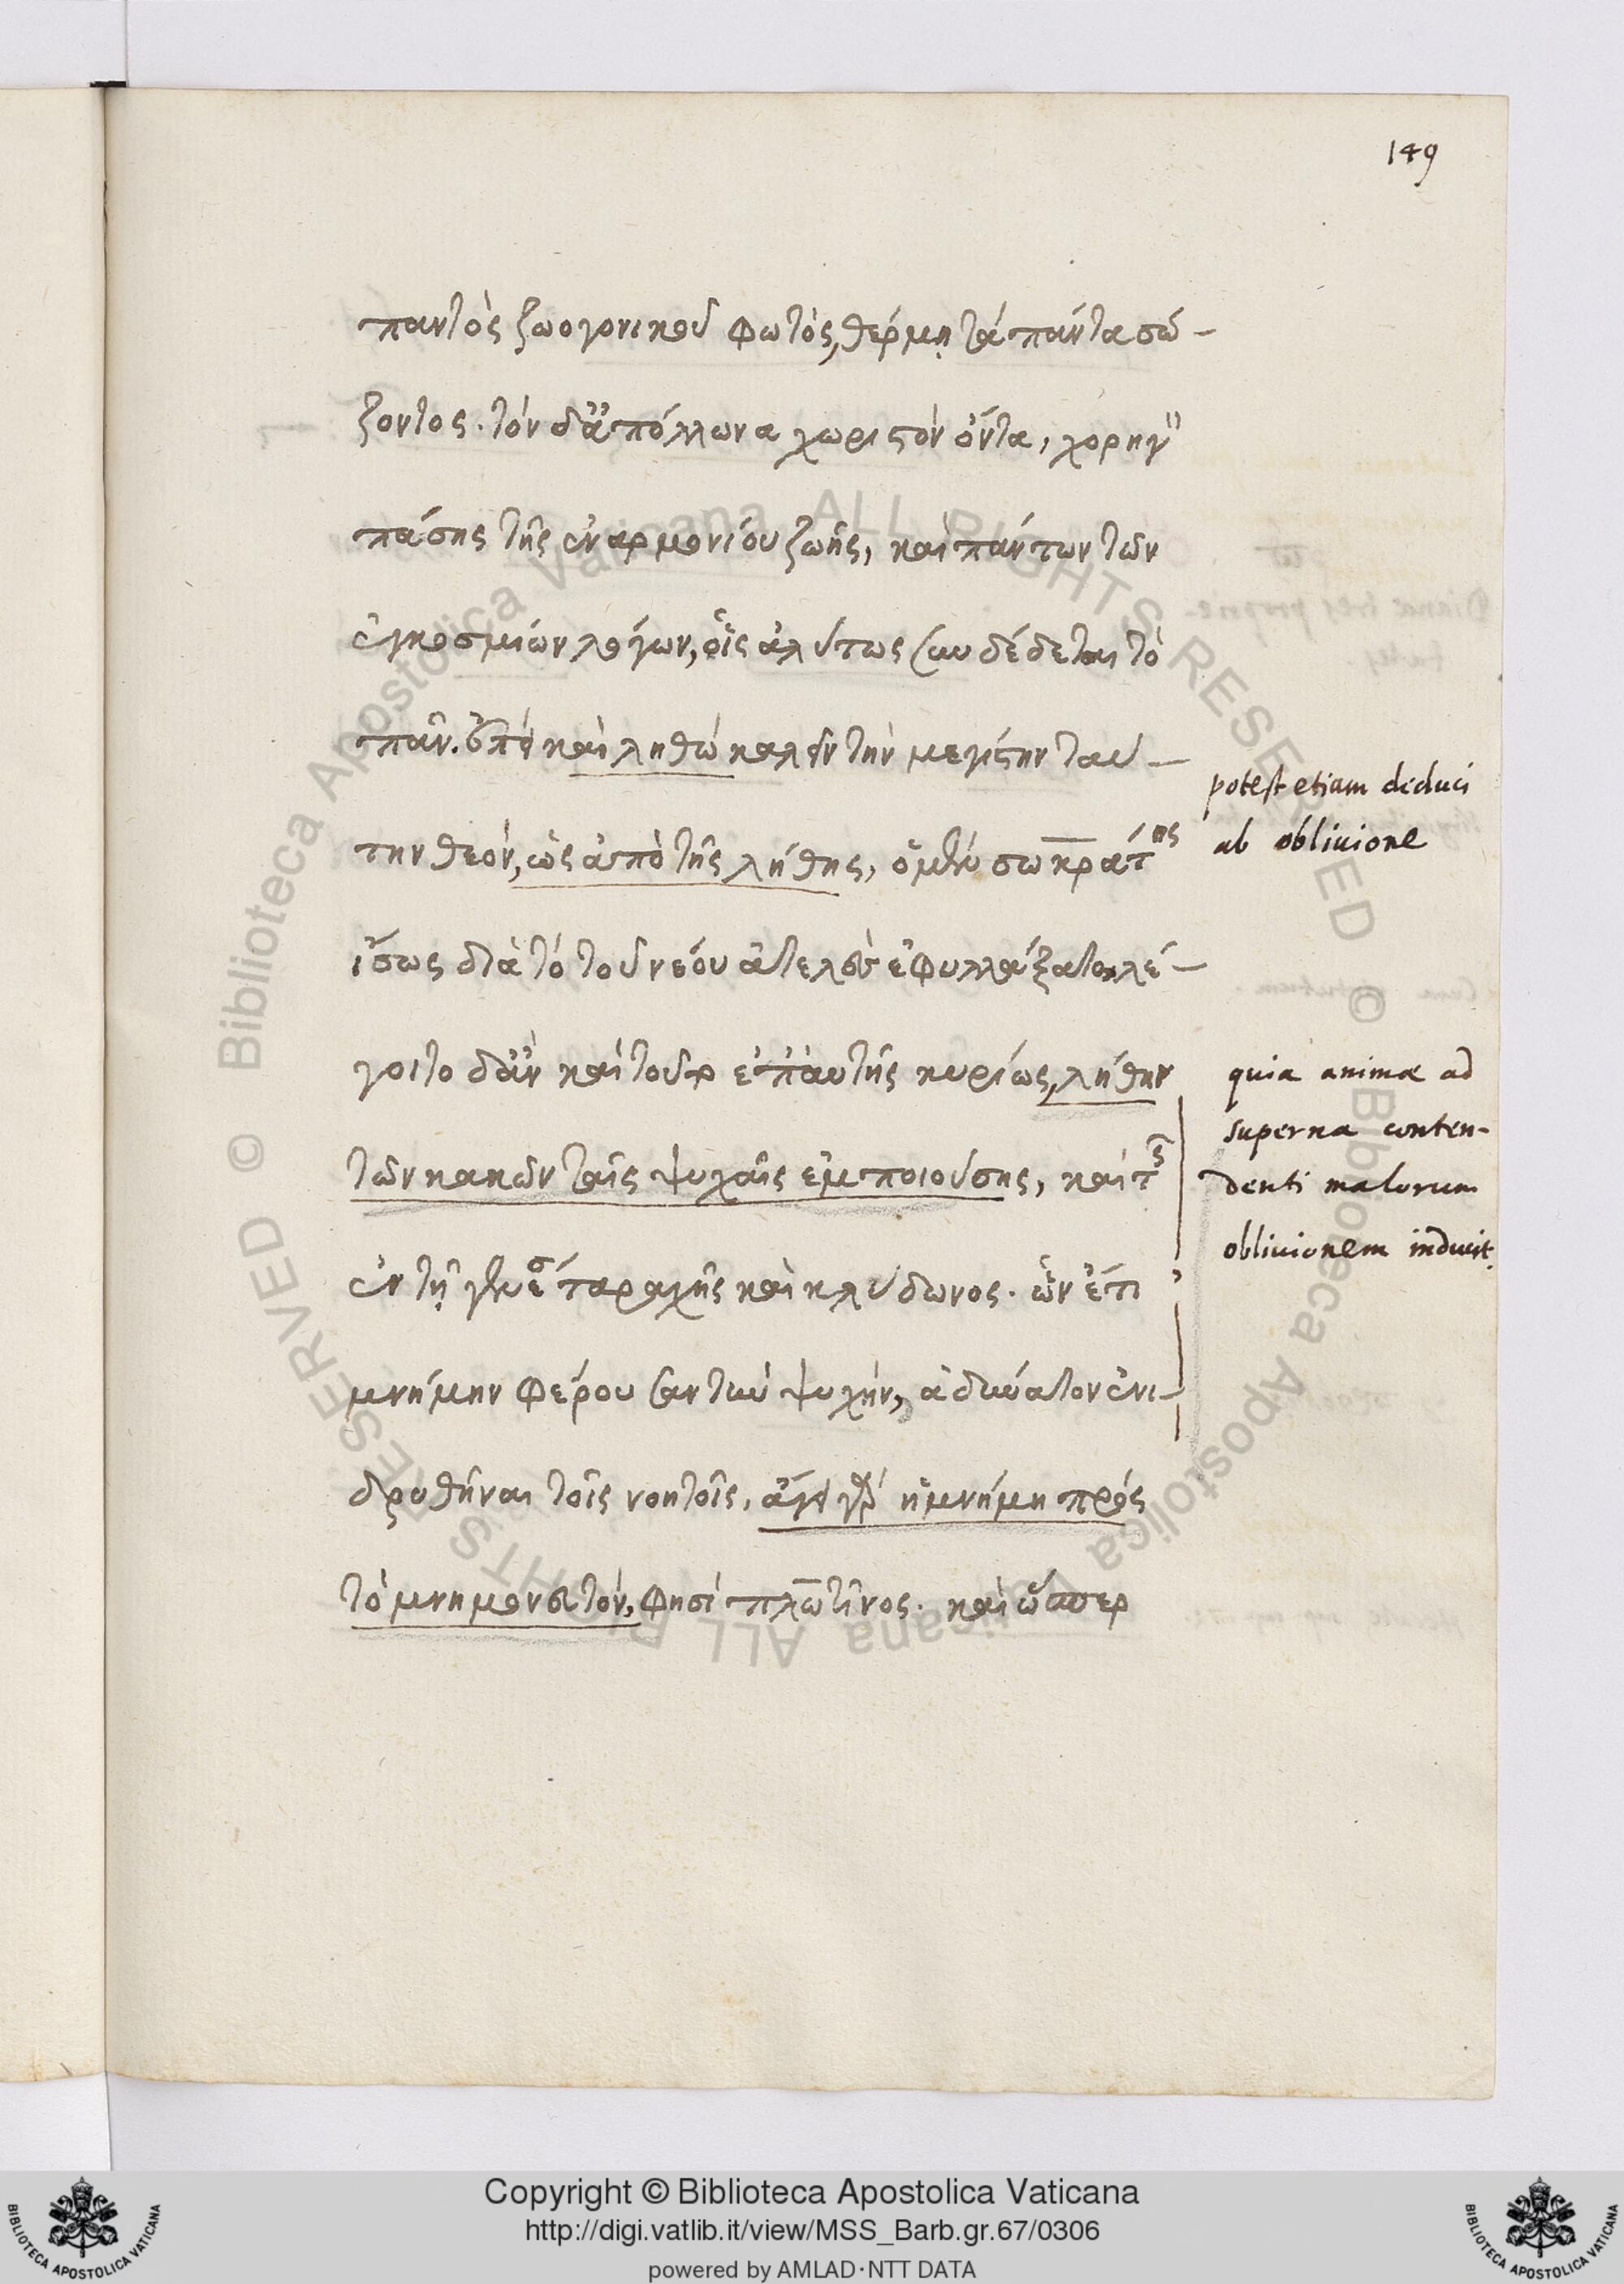 149
παντὸς ζωογονικοῦ φωτὸς, θέρμῃ τὰ πάντα σώ-
ζοντος. τὸν δ' ἀπόλλωνα χωριστὸν ὄντα, χορηγ
πάσης τῆς ἐναρμονίου ζωῆς, καὶ πάντων τῶν
ἐγκοσμιών λόγων, οἷς ἀλύτως συνδέδεται τὸ
πᾶν. καὶ ληθὼ καλεῖν τὴν μεγίστην ταύ-
την θεὸν, ὡς ἀπὸ τῆς λήθης, ὁ μὲν σωκράτης
ἴσως διὰ τὸ τοῦ νέου ἀτελὲς ἐφυλλάξατο, λέ-
γοιτο δ' ἂν καὶ τοῦτο ἐπ' αὐτῆς κυρίως, λήθην
τῶν κακῶν ταῖς ψυχαῖς ἐμποιούσης, καὶ τῆς
ἐν τῇ γενέσει ταραχῆς καὶ κλύδωνος. ὧν ἔτι
μνήμην φέρουσαν τὴν ψυχὴν, ἀδύνατον ἐνι-
δρυθῆναι τοῖς νοητοῖς. ἄγει γὰρ ἡ μνήμη πρὸς
τὸ μνημονευτὸν, φησὶ πλωτῖνος. καὶ ὥσπερ
potest etiam deduci
ab obliuione
quia animæ ad
superna conten-
denti malorum
obliuionem inducit.
Copyright © Biblioteca Apostolica Vaticana
http://digi.vatlib.it/view/MSS_Barb.gr.67/0306
powered by AMLAD·NTT DATA
BIBLIOTECA APOSTOLICA VATICANA
BIBLIOTECA APOSTOLICA VATICANA
© Biblioteca Apostolica Vaticana ALL RIGHTS RESERVED
© Biblioteca Apostolica Vaticana ALL RIGHTS RESERVED